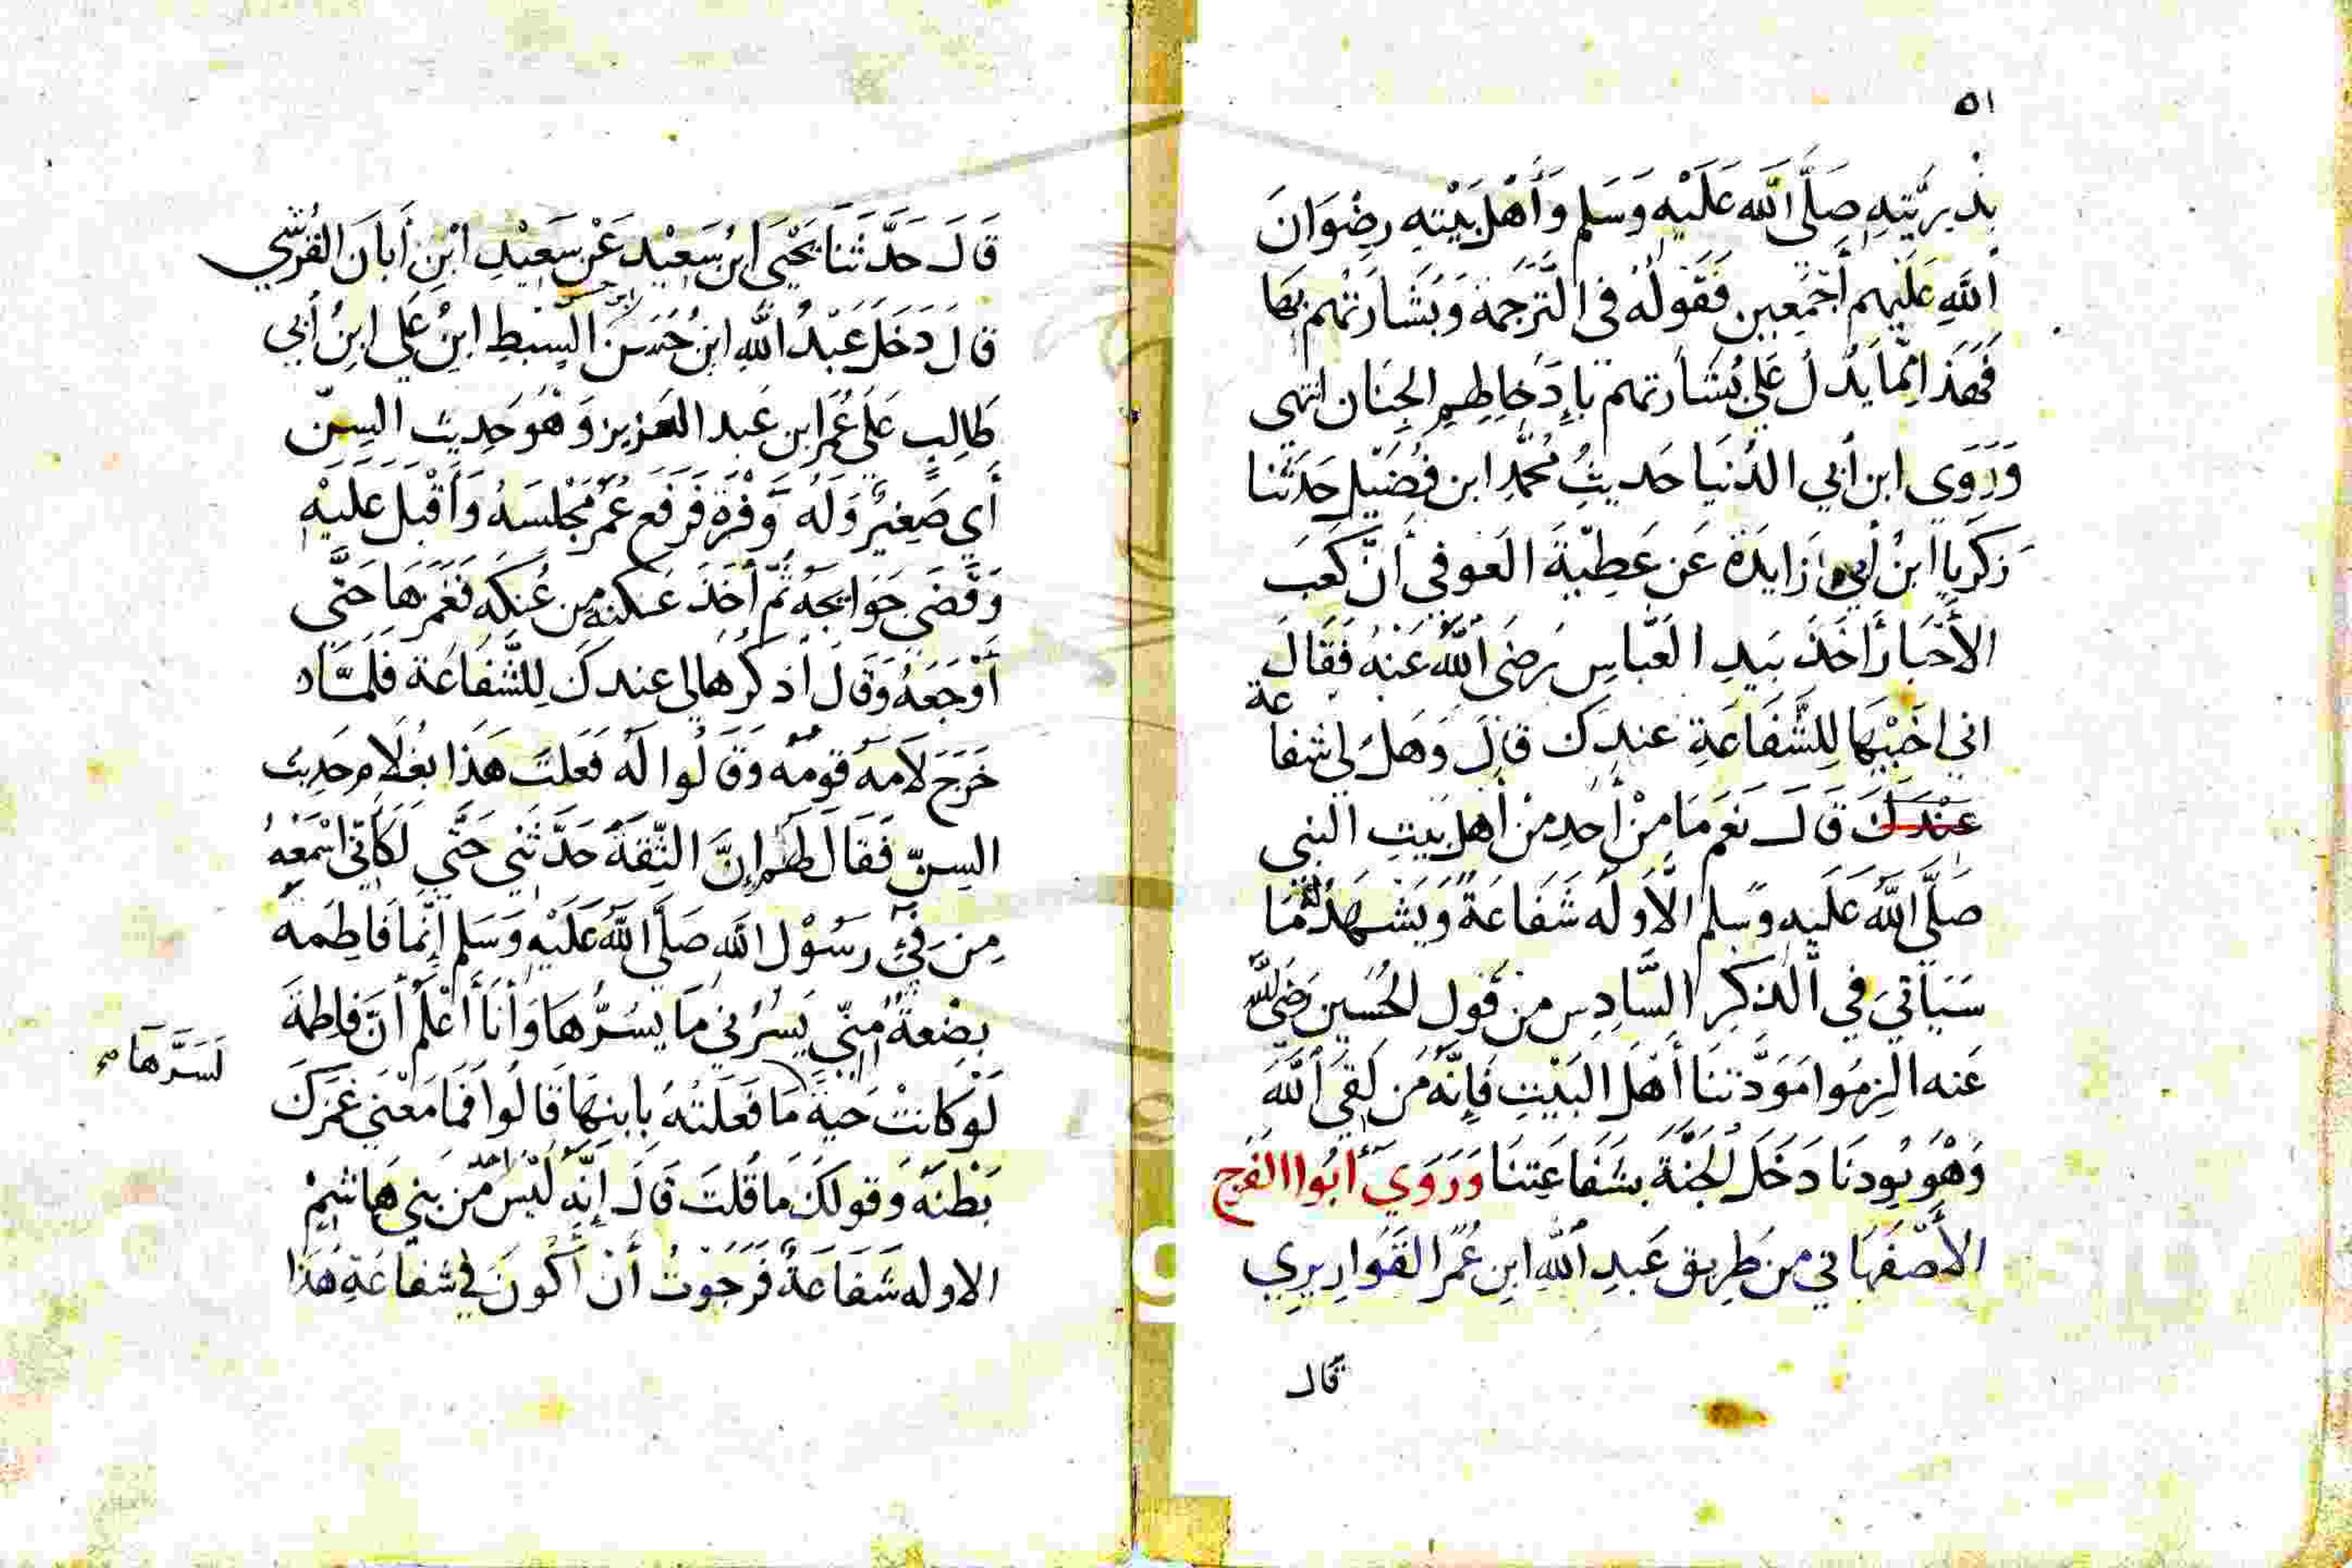 ٥١
بِذُرِّيَّتِهِ صَلَّى اللَّه عَلَيْهِ وَسَلم وَأَهْلِ بَيْتِهِ رِضْوَانَ
اللَّهِ عَلَيْهِم أَجْمَعِين فَقَوْلُهُ فى التَّرْجَمَة وَبَشَارَتُهُم بِهَا
فَهَذَا إِنَّمَا يَدُلُ عَلَى بُشَارتهم بِإِدْخَالِهِم الجِنَان انتهى
وَرَوَى ابن أبي الدُنيَا حَدِيثُ مُحَمَّدِ ابن فُضَيْل حَدَّثَنَا
زَكَرِيا ابنُ أبي زَايدَة عَن عَطِيَّةَ العَوفى أَنَّ كَعْبَ
الأَحْبَار أَخَذَ بَيدِ العَبَّاسِ رَضىَ اللَّهُ عَنْهُ فَقَالَ
اني اخَبِّيهَا لِلشَّفَاعَةِ عندك قالَ وَهَل لى شفاعة
عِنْدَكَ قَالَ نَعَم مَا مِنْ أَحدٍ مِنْ أَهل بَيتِ النبي
صَلَّى اللَّهُ عَلَيهِ وَسلم الَّا وَلَهُ شَفَاعَةٌ وَيَشْهَدُ لَهُ مَا
سَيَاتي في الذِكِرِ السَّادِسِ مِن قَولِ الحُسَين رَضِيَ اللَّه
عَنه الزِمُوا مَوَدَّتنَا أَهْلَ البَيْتِ فَإِنَّهُ مَن لَقِيَ اللَّهَ
وَهُوَ يُودنَا دَخَلَ الجَنَّةَ بشَفَاعَتِنَا وَرَوَي أَبُوا الفَرَج
الأَصْفَهَاني من طَرِيق عَبدِ اللَّهِ ابنِ عُمَر القَوَارِيرِي
قال
قَالَ حَدَّثَنَا يَحْيَى ابنُ سَعِيْد عَنْ سَعِيْدِ ابْنِ أَبَانَ القُرَشي
قالَ دَخَلَ عَبْدُ اللَّهِ ابنُ حَسَن ابن حسن السِّبْطِ ابنُ عَلِي ابنُ أبي
طَالِبٍ عَلَى عُمَر ابن عَبد العَزِيز وَهُوَ حَدِيث السِنّ
أَي صَغِيرٌ وَلَهُ وَفْرَة فَرَفَعَ عُمَرُ مَجْلِسَهُ وَأَقْبَلَ عَلَيْهِ
وَقَضَى حَوَايجَهُ ثُمَّ أَخَذَ عكنة مِن عُكَنِه فَغَمَزَهَا حَتَّى
أَوْجَعَهُ وَقَالَ أذكُرْهَا لى عندكَ لِلشَّفَاعَة فَلَمَّا د
خَرَجَ لَامَهُ قَومُهُ وَقَالُوا لَه فَعَلتَ هَذَا بغُلَامٍ حَدِيث
السِنّ فَقَالَ لَهُم إِنَّ الثِّقَةَ حَدَّثَنِي حَتَّى لَكَأَنِّي اسْمَعُهُ
مِن فِي رَسُوْل اللَّهِ صَلَّى اللَّهُ عَلَيْهِ وَسَلم إِنَّمَا فَاطِمَه
بِضْعةٌ مِنّي يَسُرُّني مَا يسُرُّهَا وَأَنَا أَعْلَمُ أَنَّ فَاطِمَةَ
لَوْ كَانَتْ حَيَّةً مَا فَعَلتهُ بِابنِهَا قَالُوا فَمَا مَعْنى غَمْزكَ
لَسَرَّهَا صح
بَطْنَهُ وَقَولكَ مَا قُلتَ قَالَ إِنَّهُ لَيْسَ احد مِّن بني هَاشِمْ
الا وله شَفَاعَةٌ فَرَجَوتُ أَنْ أَكُونَ في شفاعَةِ هَذَا